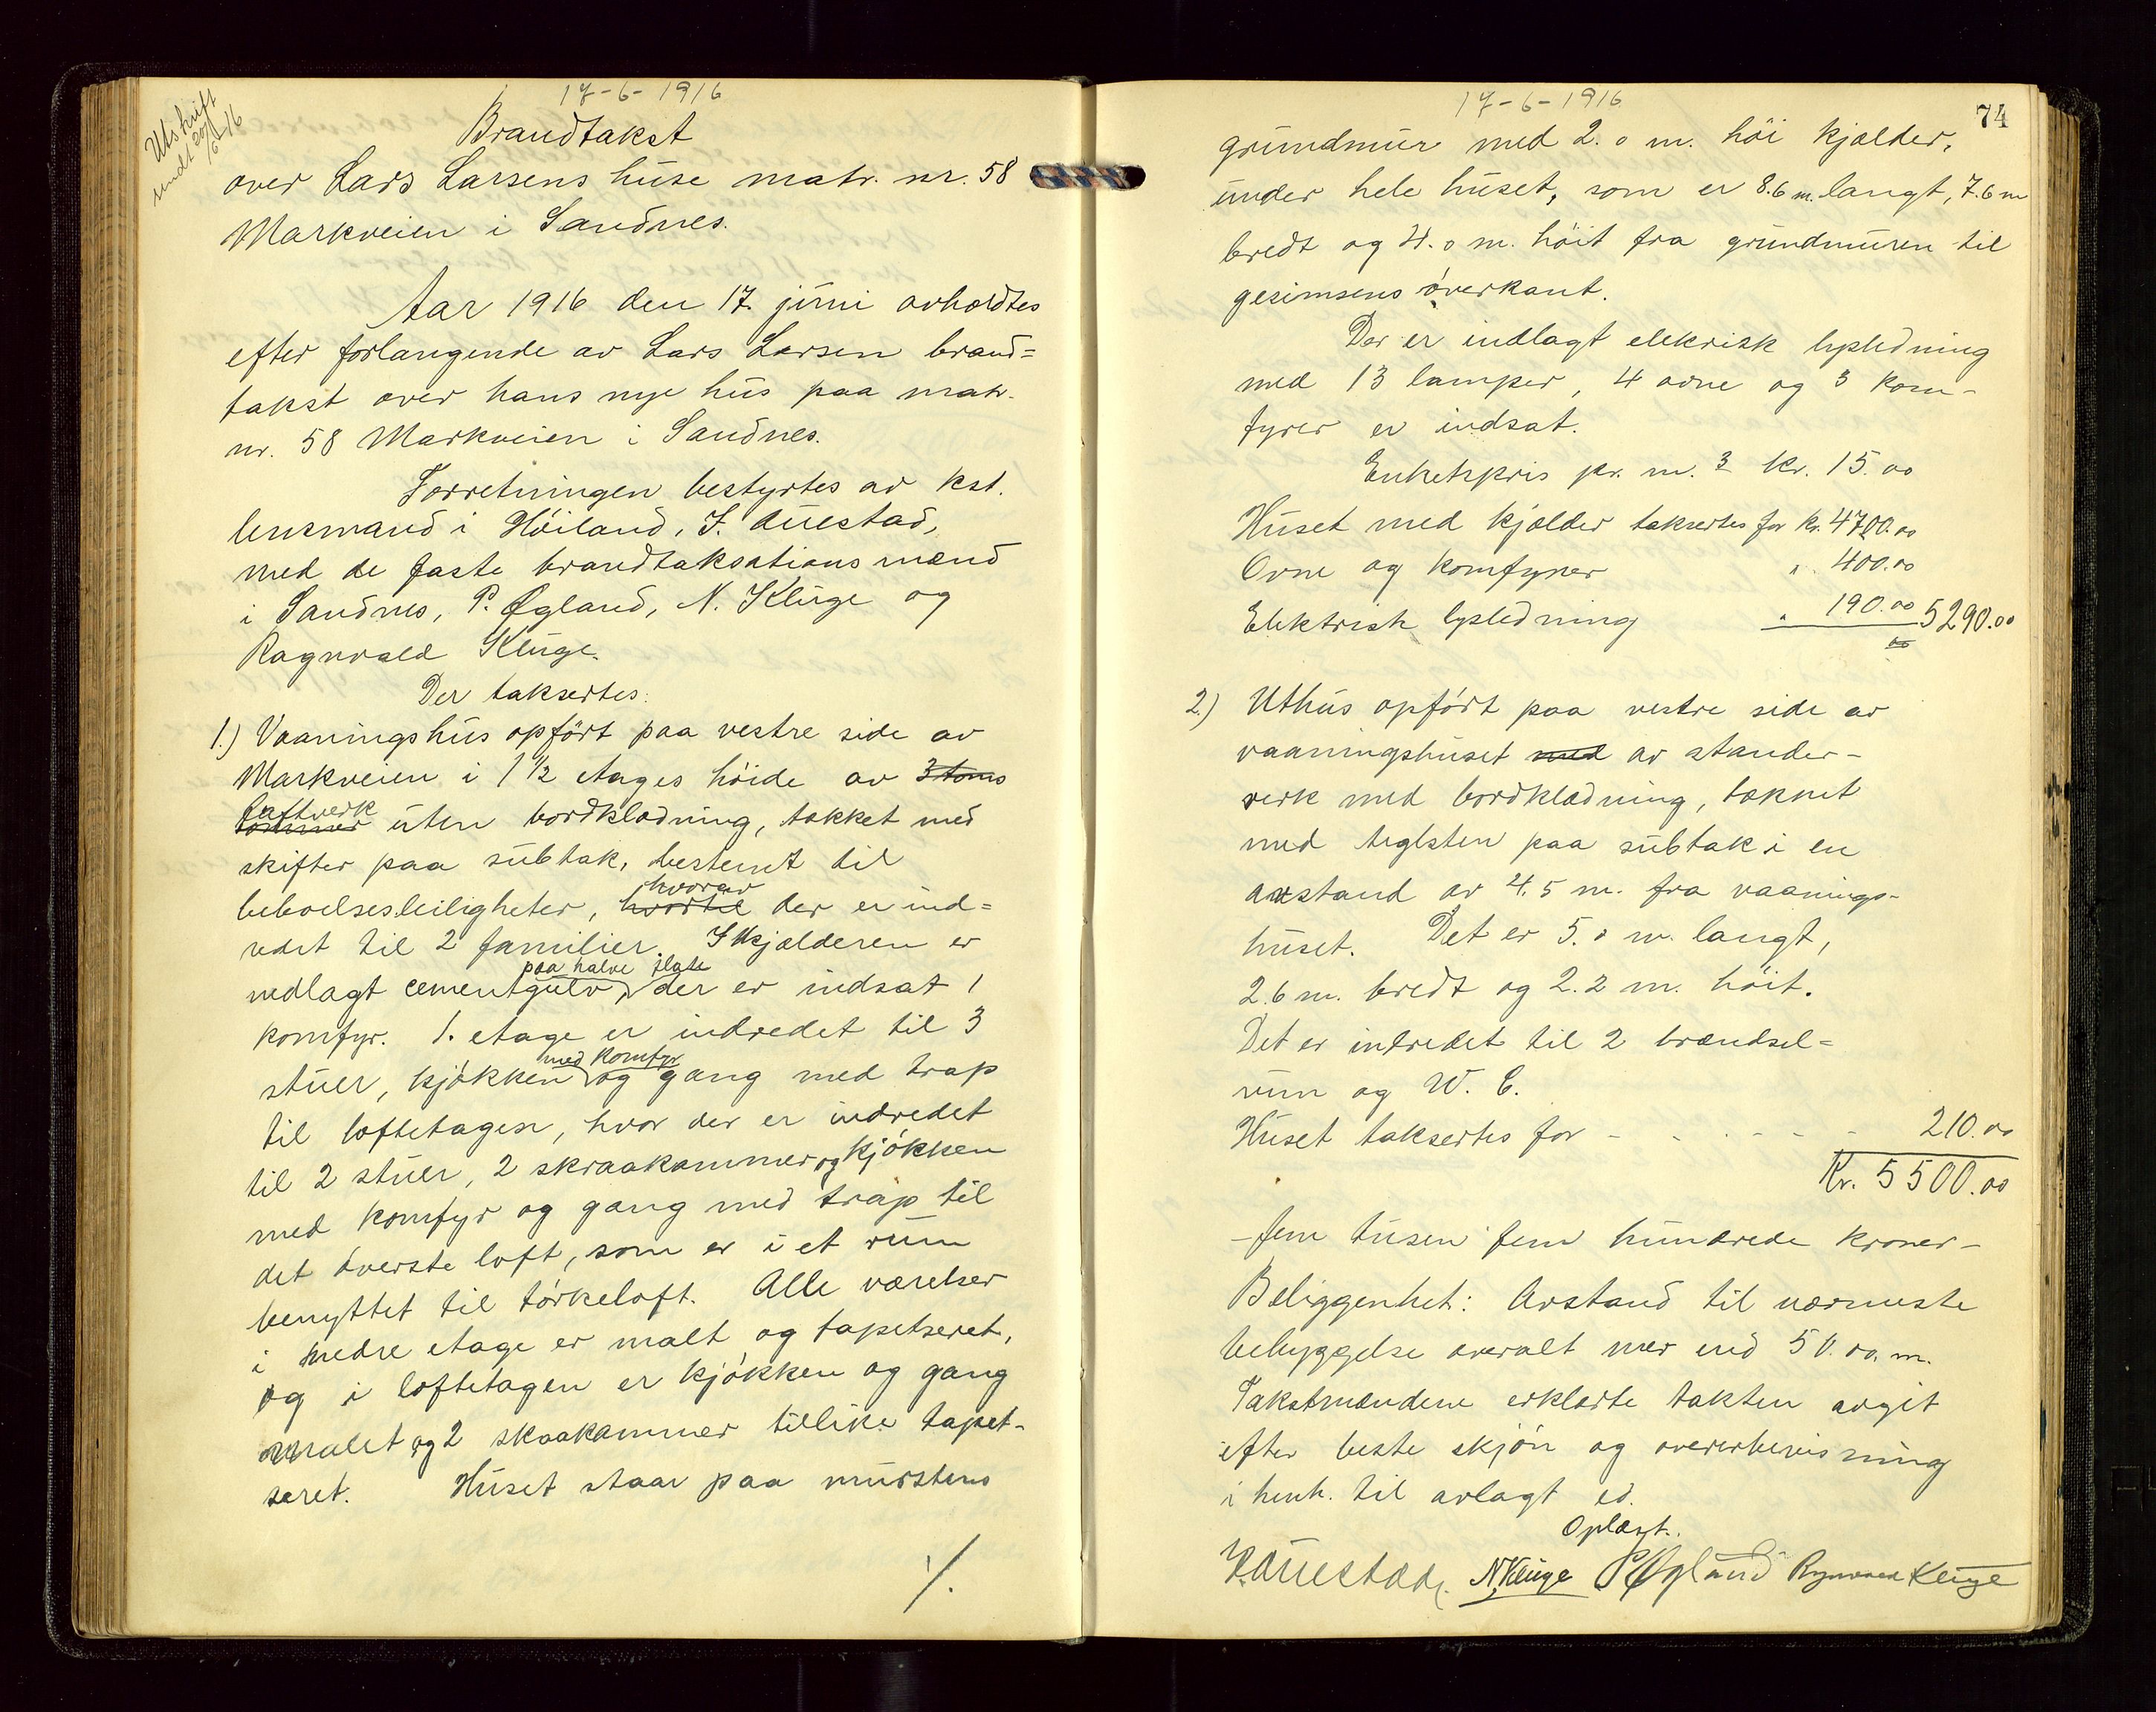 Utskrift
sendt 20/6 16
17-6-1916
Brandtakst
over Lars Larsens huse matr. nr. 58
Markveien i Sandnes.
Aar 1916 den 17. juni avholdtes
efter forlangende av Lars Larsen brand=
takst over hans nye hus paa matr.
nr. 58 Markveien i Sandnes.
Forretningen bestyrtes av kst.
lensmand i Höiland, T. Auestad,
med de faste brandtaksationsmænd
i Sandnes, P. Øgland, N. Kluge og
Ragnvald Kluge.
Der taksertes:
1.) Vaaningshus opfört paa vestre side av
Markveien i 1 1/2 etages höide av 3 toms
laftverk
tömmer uten bordklædning, tækket med
skifter paa subtak, bestemt til
hvorav
beboelsesleiligheter, hvortil der er ind=
redet til 2 familier. I kjælderen er
paa halve flate
nedlagt cementgulv, der er indsat 1
komfyr. 1. etage er indredet til 3
med komfyr
stuer, kjökken og gang med trap
til loftetagen, hvor der er indredet
til 2 stuer, 2 skraakammer og kjökken
med komfyr og gang med trap til
det överste loft, som er i et rum
benyttet til törkeloft. Alle værelser
i nedre etage er malt og tapetseret,
og i loftetagen er kjökken og gang
malet og 2 skraakammer tillike tapet-
seret. Huset staar paa murstens
./.
17-6-1916
74
grundmur med 2.0 m. höi kjælder,
under hele huset, som er 8.6 m. langt, 7.6 m
bredt og 4.0 m. höit fra grundmuren til
gesimsens överkant.
Der er indlagt elekrisk lysledning
med 13 lamper, 4 ovne og 3 kom-
fyrer er indsat.
Enhetspris pr. m.3 kr. 15.00
Huset med kjælder taksertes for kr. 4700.00
Ovne og komfyrer " 400.00
Elektrisk lysledning " 190.00 5290.00
2.) Uthus opfört paa vestre side av
vaaningshuset med av stender-
verk med bordklædning, tækket
med teglsten paa subtak i en
avstand av 4.5 m. fra vaanings-
huset. Det er 5.0 m. langt,
2.6 m. bredt og 2.2 m. höit.
Det er intredet til 2 brændsel=
rum og W. C.
Huset taksertes for - - - - - - 210.00
Kr. 5500.00
- fem tusen fem hundrede kroner -
Beliggenhet: Avstand til nærmeste
bebyggelse overalt mer end 50.00 m.
Takstmændene erklærte takten avgit
efter beste skjön og overerbevisning
i henh. til avlagt ed.
Oplæst.
T. Auestad. N. Kluge P Øgland Ragnvald Kluge